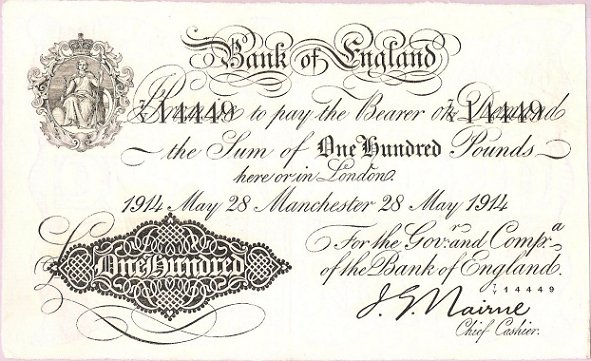 Bank of England
7/Y 14449 to pay the Bearer on Demand 7/Y 14449
the Sum of One Hundred Pounds
here or in London.
1914 May 28 Manchester 28 May 1914
For the Govr. and Compa.
of the Bank of England.
7/Y 14449
One Hundred
J. G. Nairne
Chief Cashier.